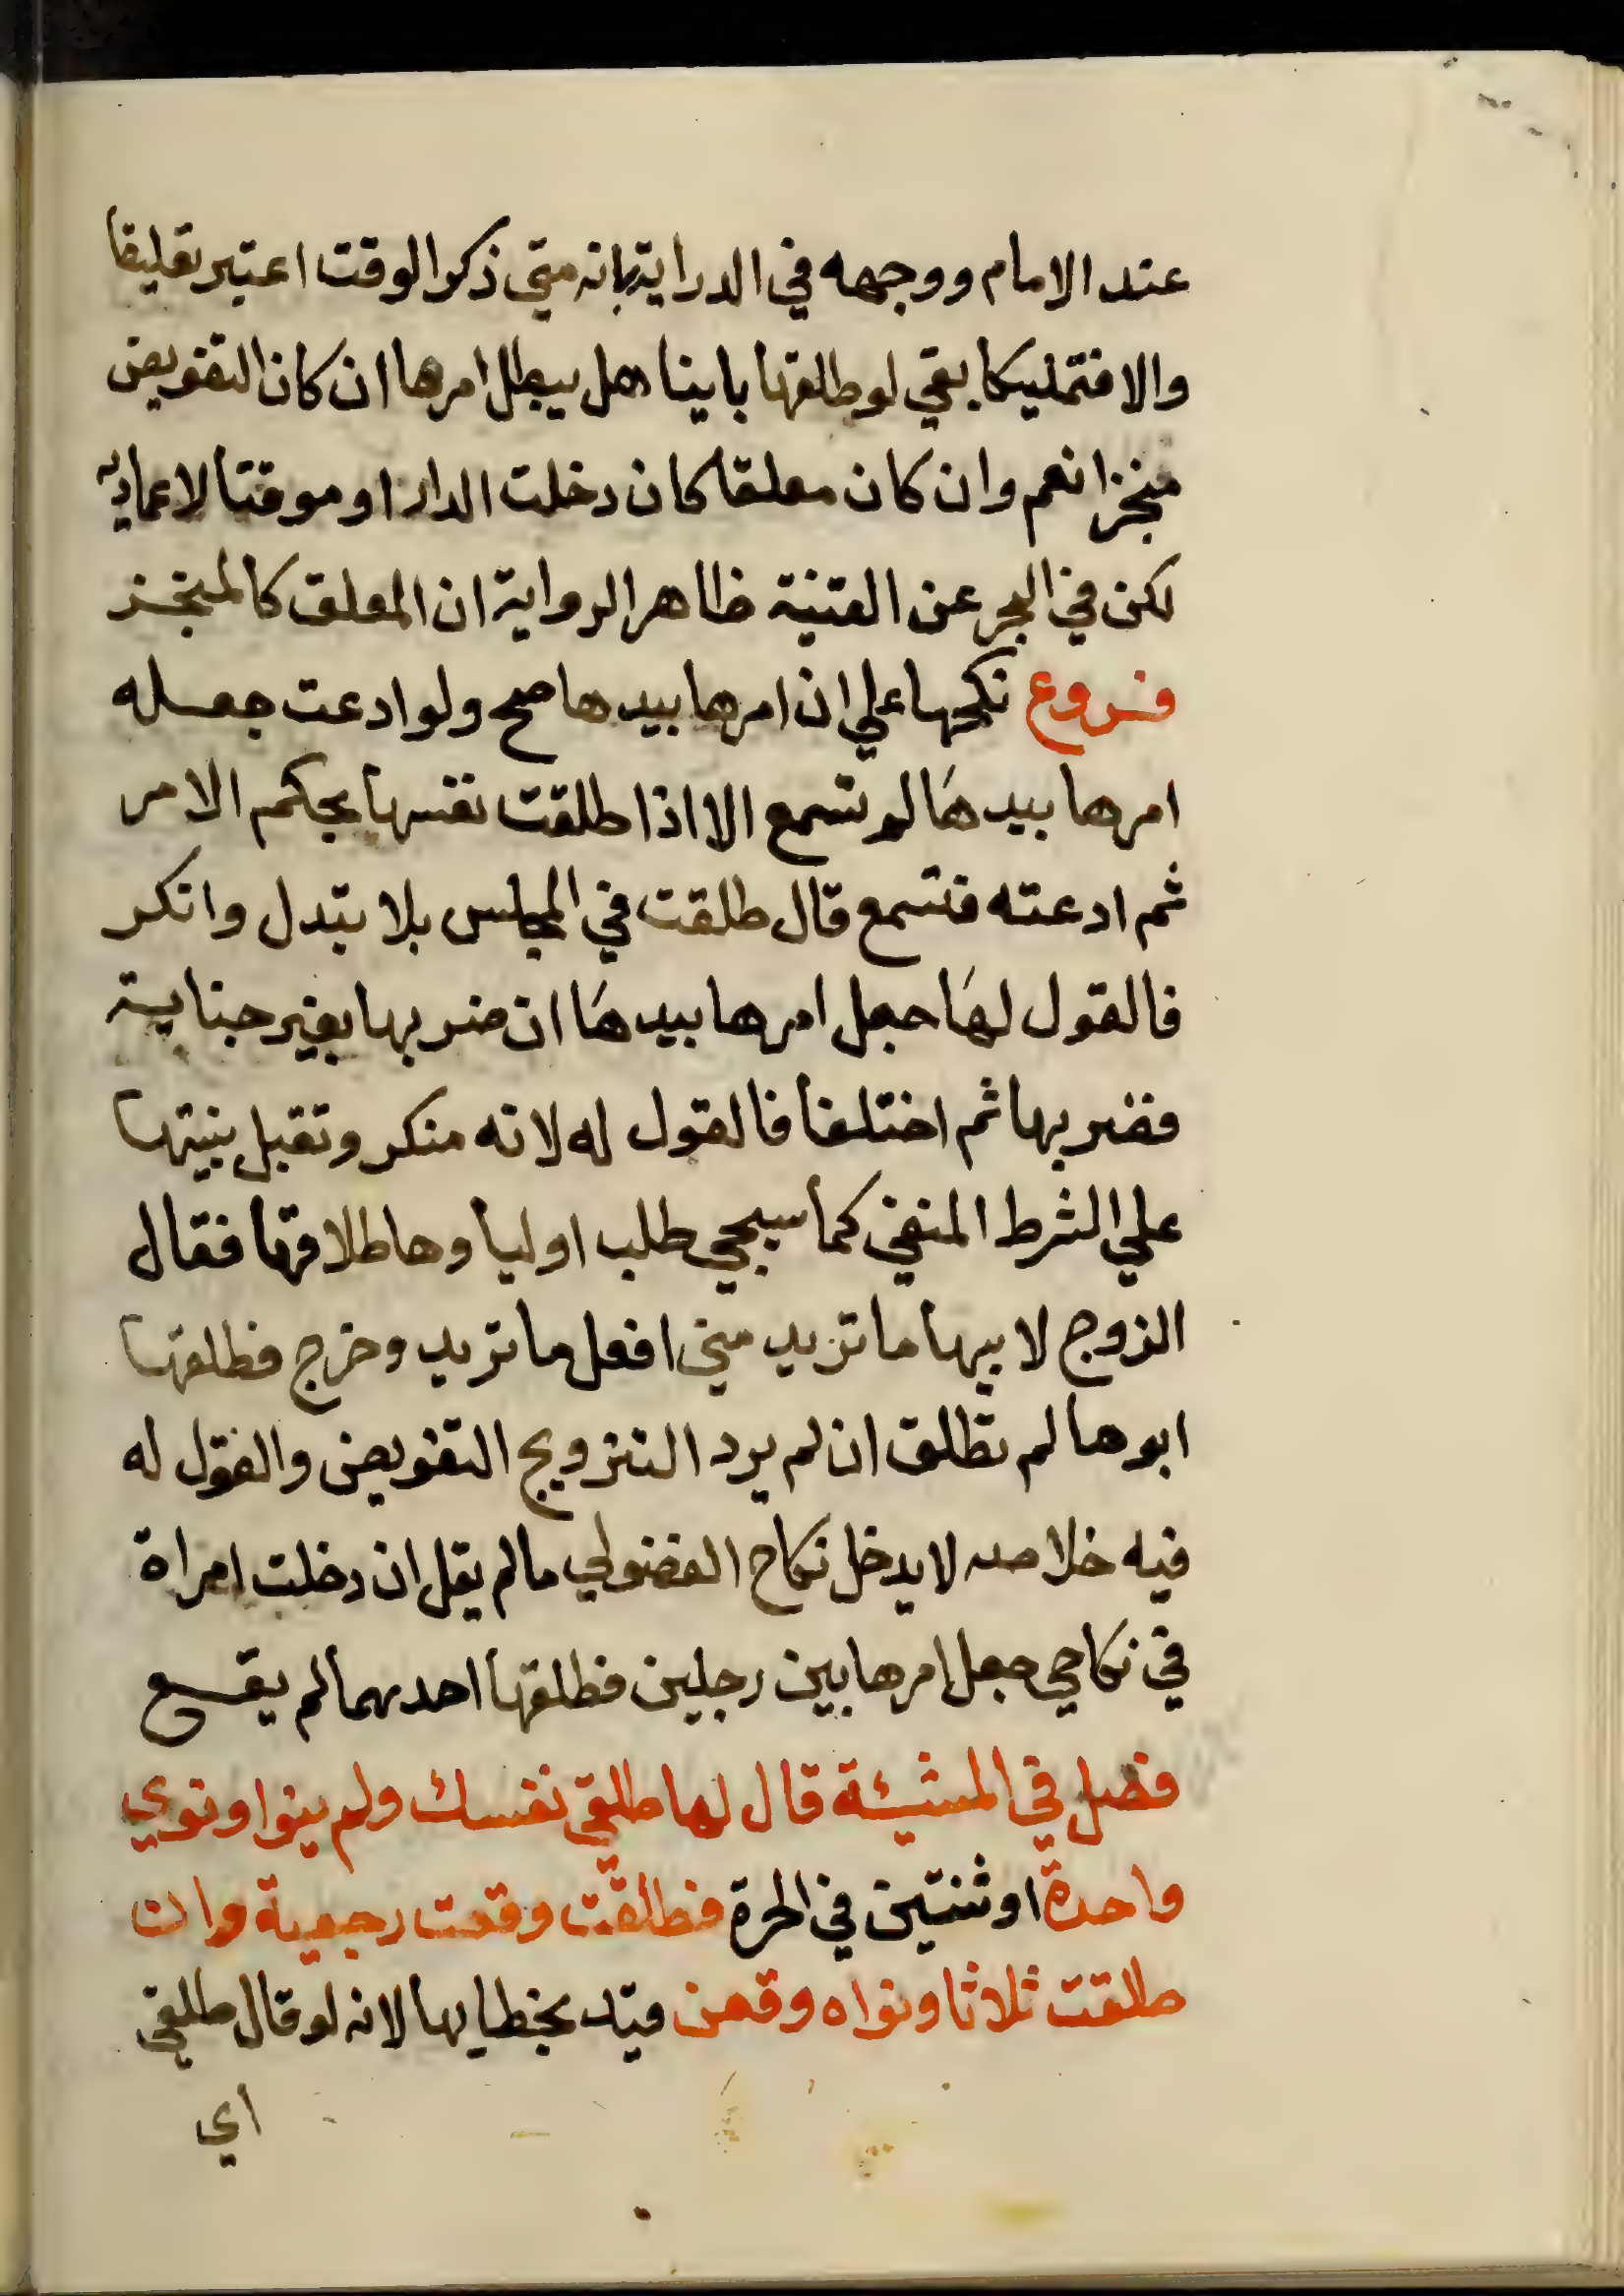 عند الامام ووجهه في الدراية بانه متي ذكر الوقت اعتبر تعليقا
والا فتمليكا بقي لو طلقها باينا هل يبطل امرها ان كان التفويض
منجزا نعم وان كان معلقا كان دخلت الدار او موقتا لا عمادية
لكن في البحر عن القنية ظاهر الرواية ان المعلق كالمنجز
فروع نكحها علي ان امرها بيدها صح ولو ادعت جعله
امرها بيدها لم تسمع الا اذا طلقت نفسها بحكم الامر
ثم ادعته فتسمع قال طلقت في المجلس بلا تبدل وانكر
فالقول لها جعل امرها بيدها ان ضربها بغير جناية
فضربها ثم اختلفا فالقول له لانه منكر وتقبل بينتها
علي الشرط المنفي كما سيجي طلب اولياوها طلاقها فقال
الزوج لابيها ما تريد مني افعل ما تريد وخرج فطلقها
ابوها لم تطلق ان لم يرد التزويج التفويض والقول له
فيه خلاصه لا يدخل نكاح الفضولي ما لم يقل ان دخلت امراة
في نكاحي جعل امرها بين رجلين فطلقها احدهما لم يقع
فصل في المشيئة قال لها طلقي نفسك ولم ينو او نوي
واحدة او ثنتين في الحرة فطلقت وقعت رجعية وان
طلقت ثلاثا ونواه وقعن قيد بخطابها لانه لو قال طلقي
أي